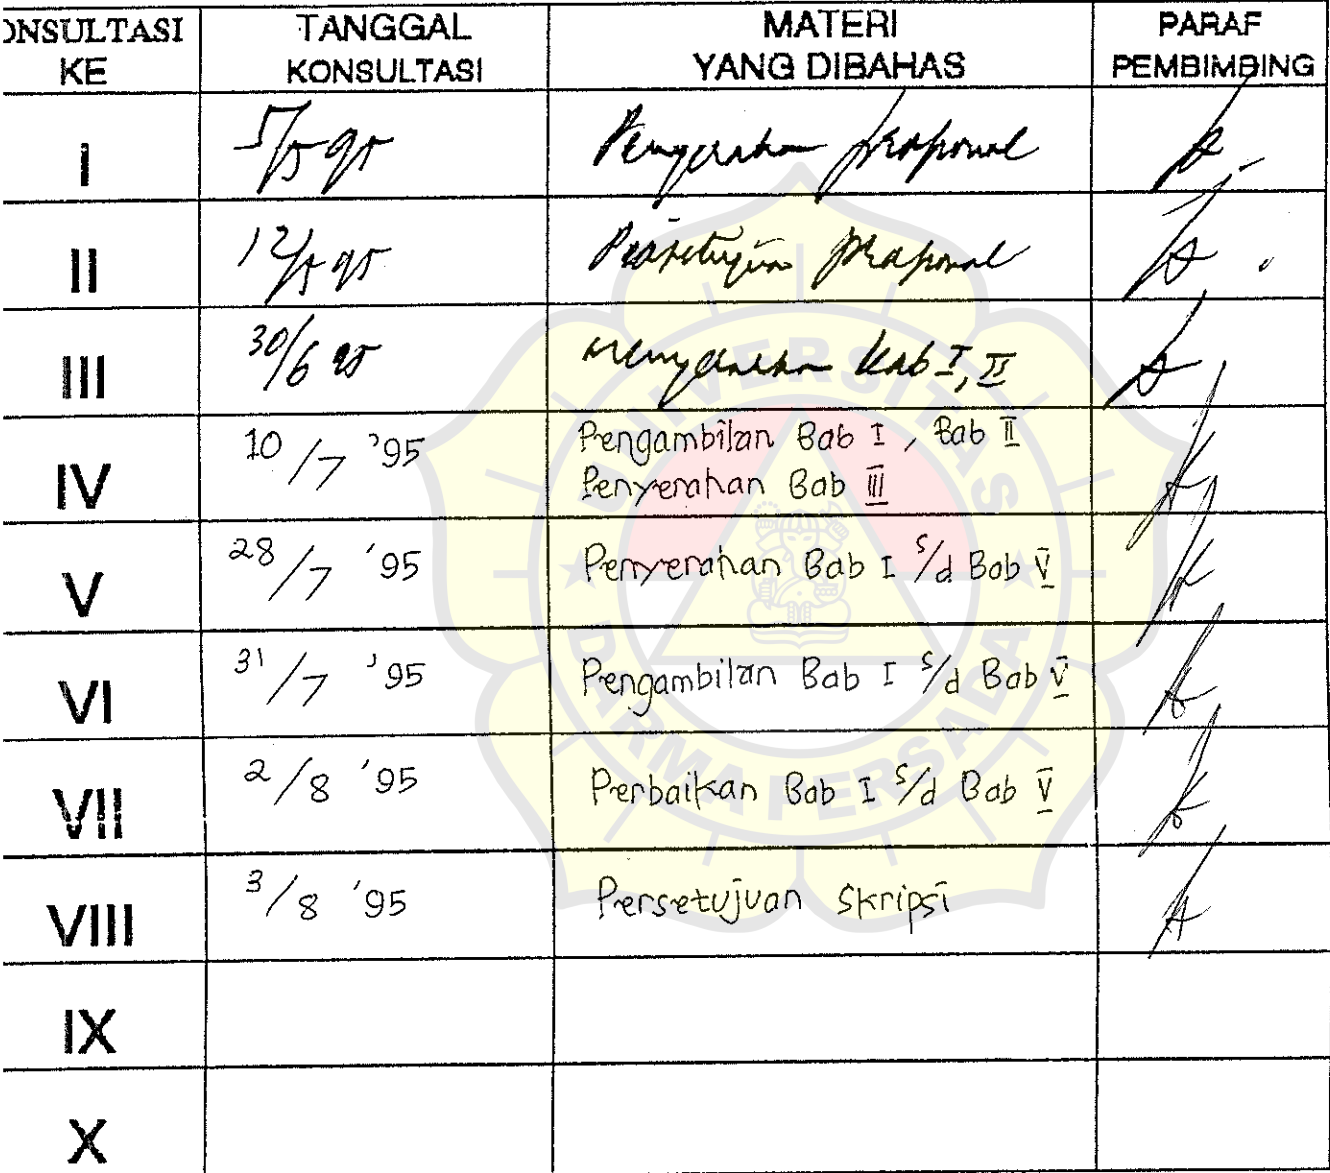 ONSULTASI KE
TANGGAL KONSULTASI
MATERI YANG DIBAHAS
PARAF PEMBIMBING
I 5/5 95 Penyerahan proposal
II 12/5 95 Persetujuan proposal
III 30/6 95 menyerahkan bab I, II
IV 10/7 '95 Pengambilan Bab I, Bab II
Penyerahan Bab III
V 28/7 '95 Penyerahan Bab I s/d Bab V
VI 31/7 '95 Pengambilan Bab I s/d Bab V
VII 2/8 '95 Perbaikan Bab I s/d Bab V
VIII 3/8 '95 Persetujuan Skripsi
IX
X
UNIVERSITAS
DARMA PERSADA